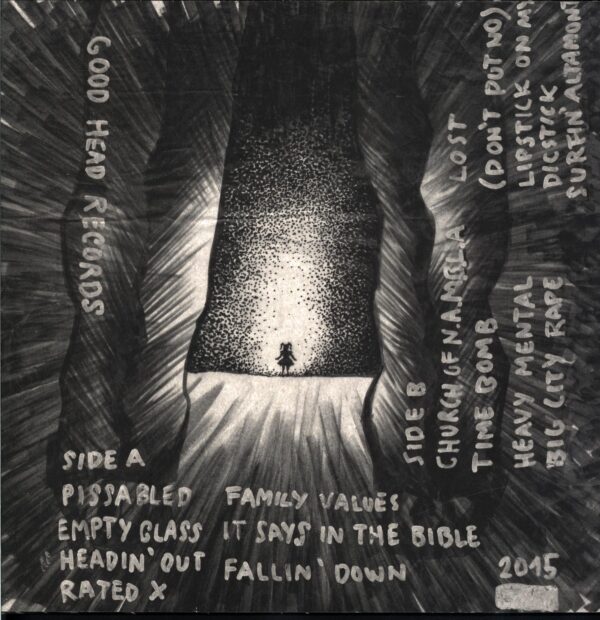 GOOD HEAD RECORDS
SIDE A
PISSABLED
EMPTY GLASS
HEADIN' OUT
RATED X
FAMILY VALUES
IT SAYS IN THE BIBLE
FALLIN' DOWN
SIDE B
CHURCH OF N.A.M.B.L.A
TIME BOMB
HEAVY MENTAL
BIG CITY RAPE
LOST
(DON'T PUT NO)
LIPSTICK ON MY
DICSTICK
SURFIN' ALTAMONT
2015